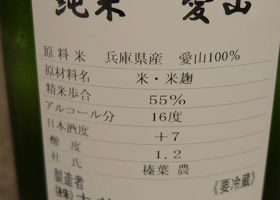 純米 愛山
原料米 兵庫県産 愛山100%
原材料名 米・米麹
精米歩合 55%
アルコール分 16度
日本酒度 +7
酸度 1.2
杜氏 榛葉 農
製造者 《要冷蔵》
(株)